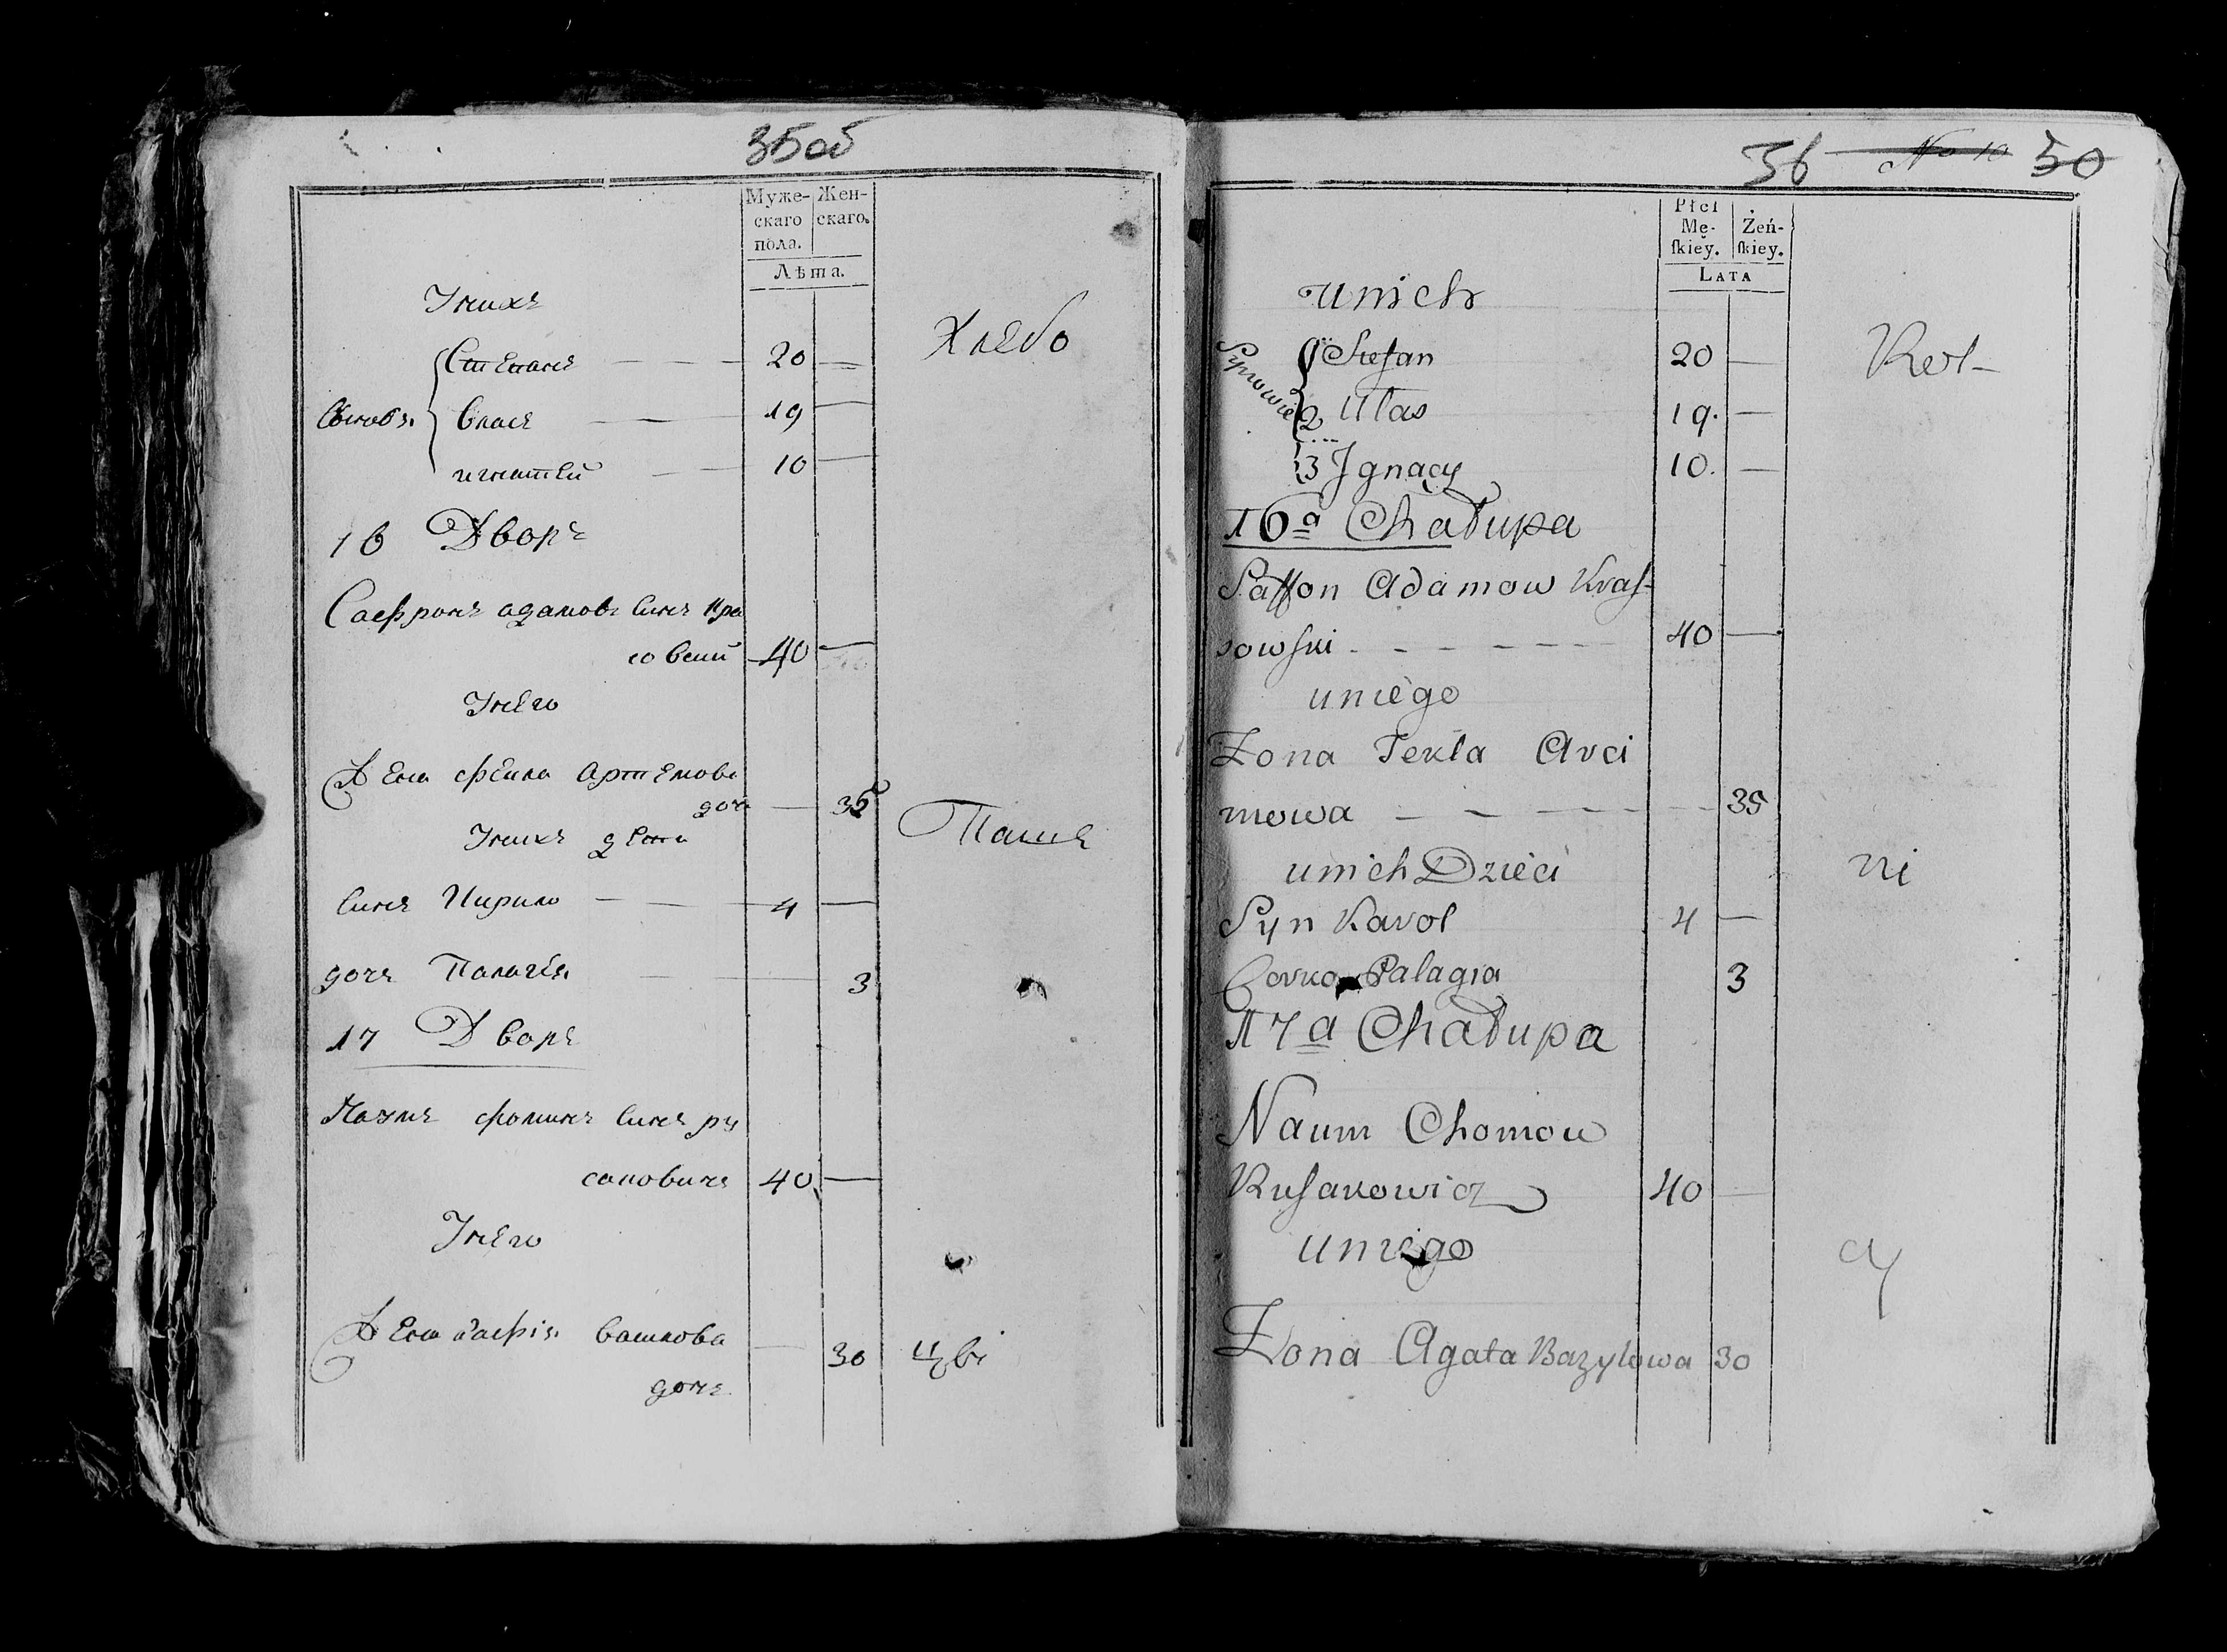 35об
Муже- Жен-
скаго скаго.
пола.
Лѣта.
Унихъ
Хлебо
Степанъ 20 —
Сыновъя Власъ 19 —
игнатей 10 —
16 Дворъ
Сафронъ адамовъ синъ Кра
совский 40 —
Унего
Жена фекла Артемова
дочь — 35
Паше
Унихъ дети
синъ Кирило 4 —
дочь Палагія 3
17 Дворъ
Наумъ фоминъ синъ ру
саковичъ 40 —
Унего
Жена Васкова
30 цы
дочь
36 No 10 50
Płci
Mę- Żeń-
skiey. skiey.
LATA
unich
Ret-
Synowie 1 Stefan 20 —
2 Ułas 19. —
3 Jgnacy 10. —
16a Chałupa
Saffon Adamow Kras-
sowski 40 —
uniego
Zona Tekla Arci
mowa 35
unich Dzieci
ni
Syn Karol 4 —
Corka Palagia 3
17a Chałupa
Naum Chomow
Rusakowicz 40 —
uniego
cy
Zona Agata Bazylowa 30